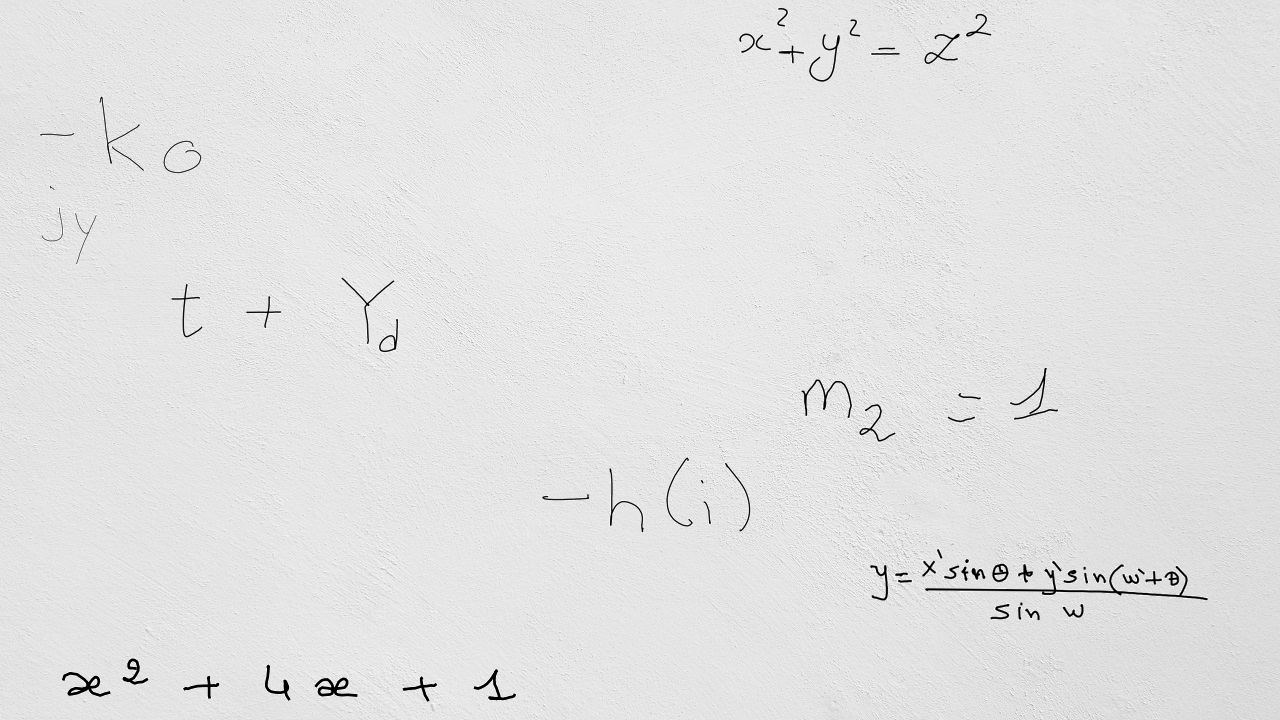 x² + y² = z²
-k₀
jy
t + Y_d
m₂ = 1
-h(i)
y = (x' sin θ + y' sin(w' + θ)) / (sin w)
x² + 4x + 1